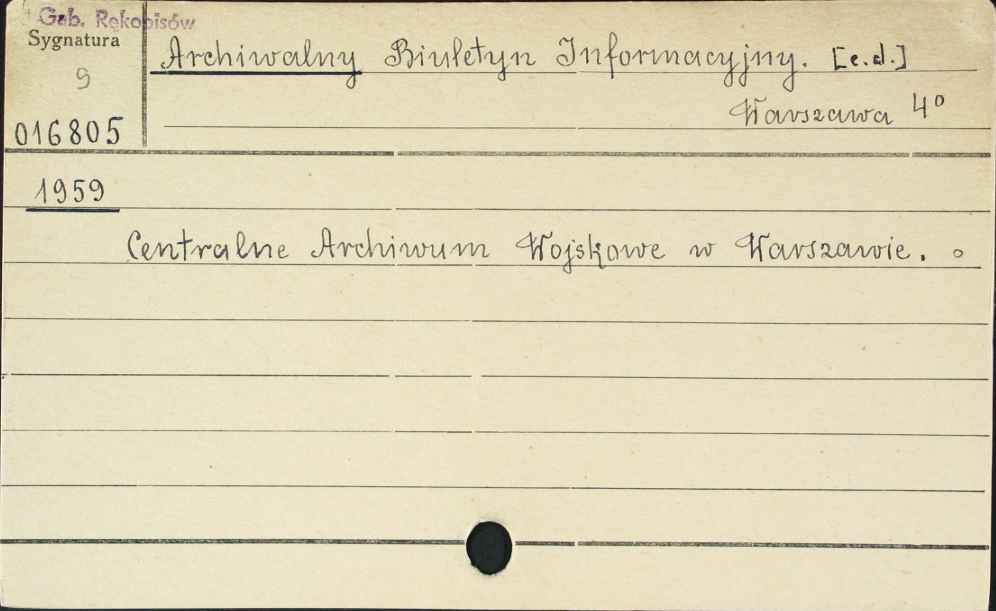 Gab. Rękopisów
Sygnatura
9
016805
Archiwalny Biuletyn Informacyjny. [c.d.]
Warszawa 4º
1959
Centralne Archiwum Wojskowe w Warszawie.